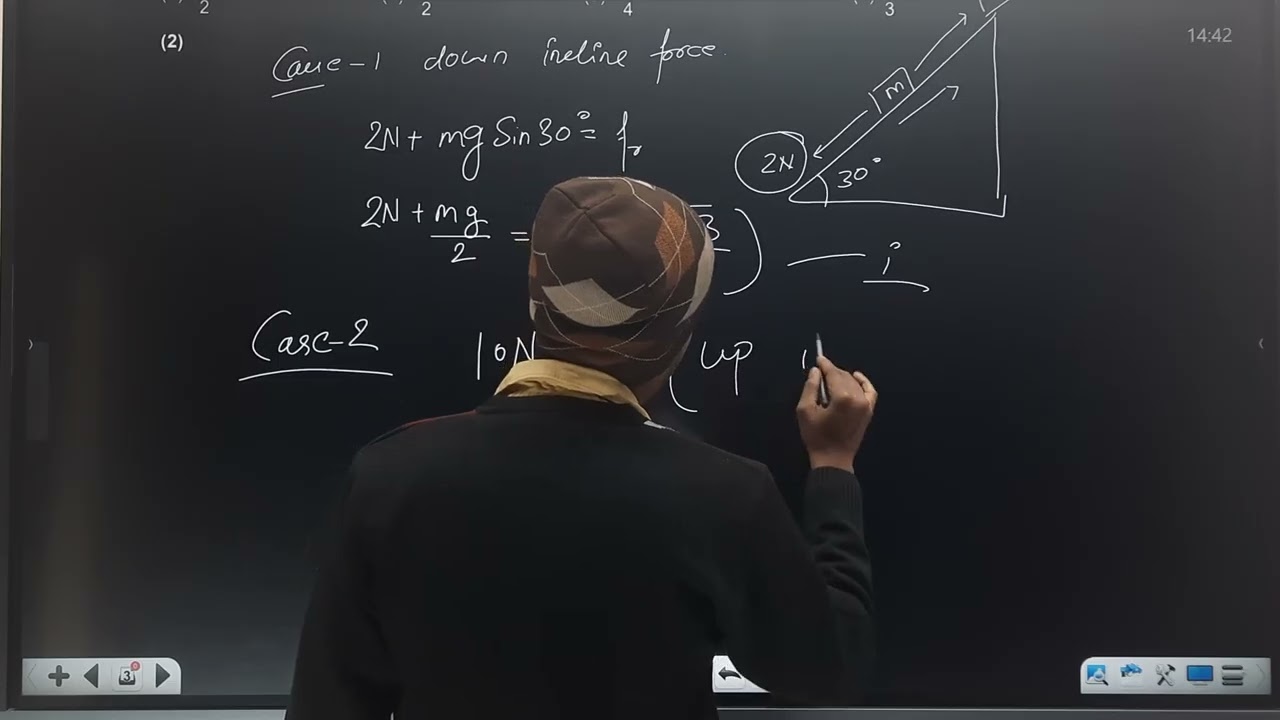 2 2 4 3
(2)
14:42
Case-1 down incline force.
m
2N + mg Sin30° = fr
2N
30°
2N + mg/2 = 3 ) — i
Case-2 10N (up
3